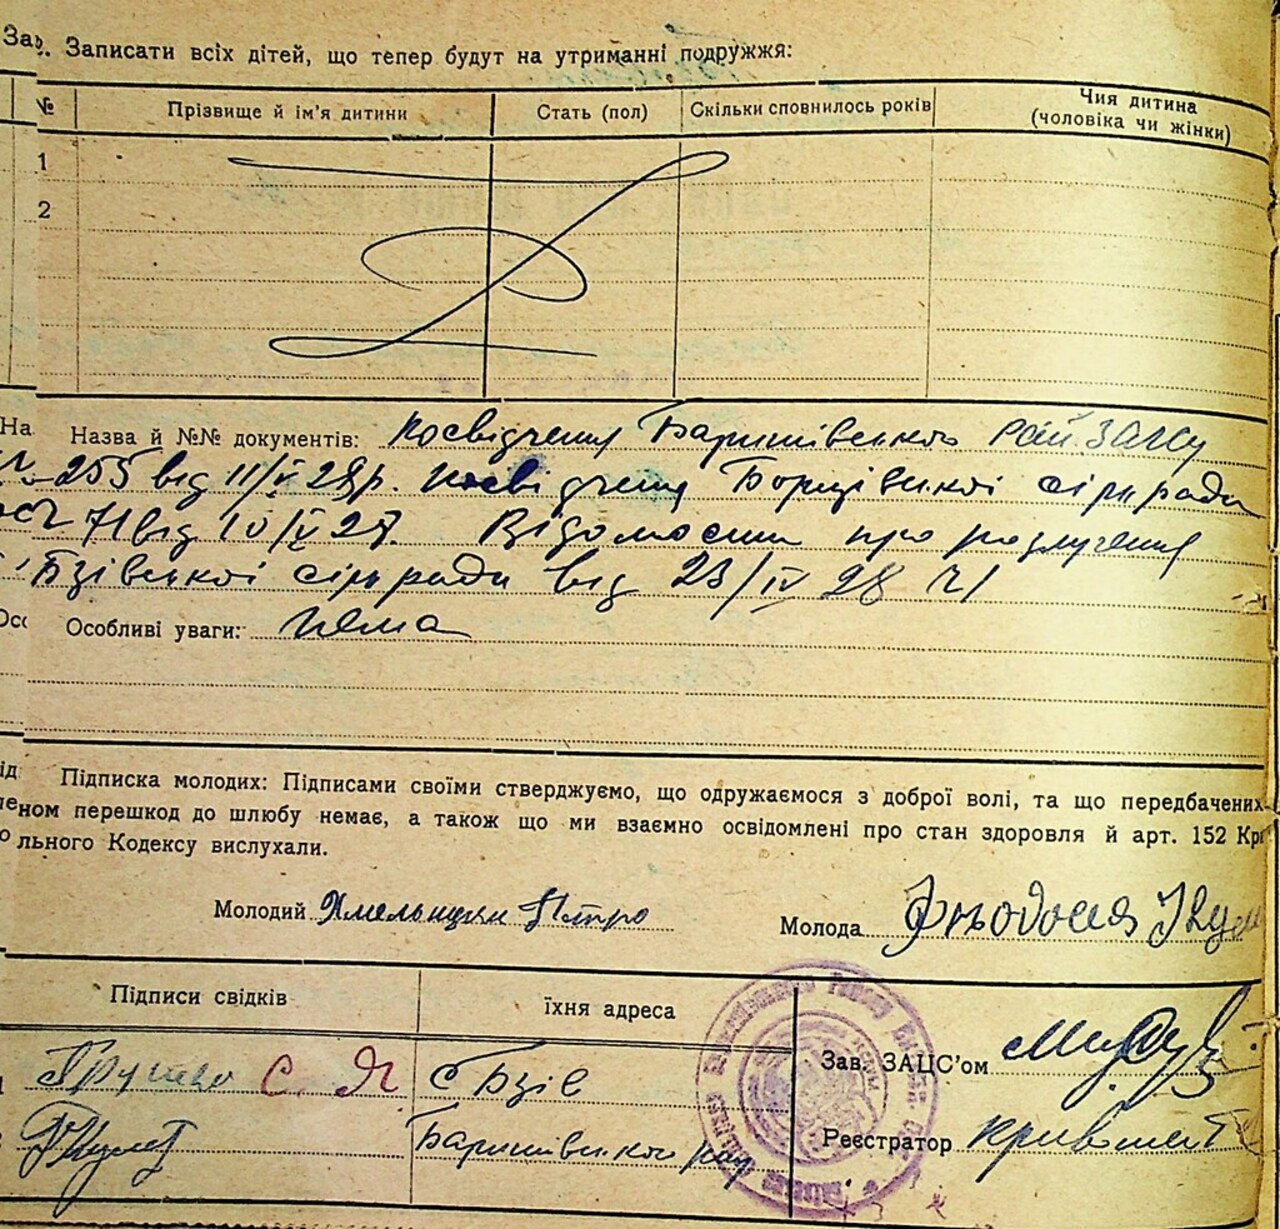 Записати всіх дітей, що тепер будут на утриманні подружжя:
№ Прізвище й ім'я дитини Стать (пол) Скільки сповнилось років Чия дитина
(чоловіка чи жінки)
1
2
Назва й №№ документів: Посвідчення Баришівського Рай.ЗАГСу
255 від 11/V 28р. Посвідчення сільради
71 від 10/V 28. Відомости про розлучення
Бзівської сільради від 23/IV 28 Ч1
Особливі уваги: Нема
Підписка молодих: Підписами своїми стверджуємо, що одружаємося з доброї волі, та що передбачених
перешкод до шлюбу немає, а також що ми взаємно освідомлені про стан здоровля й арт. 152 Кри
льного Кодексу вислухали.
Молодий Хмельницки Петро
Молода
Підписи свідків їхня адреса
С. Я с Бзів
Баришівського рай
Зав. ЗАЦС'ом
Реєстратор